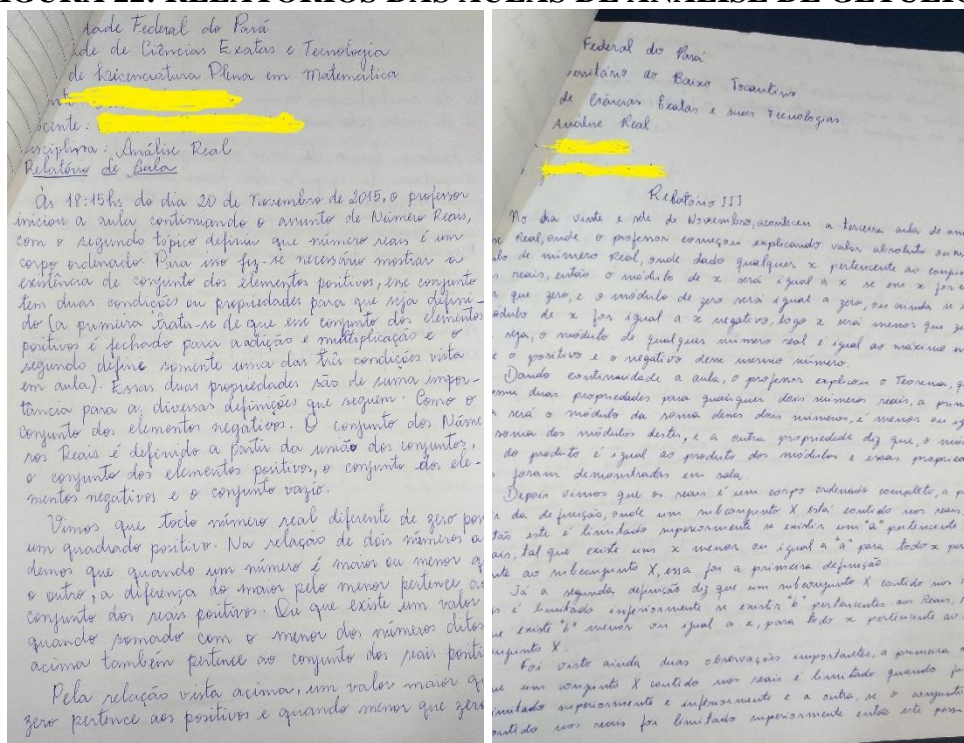 FIGURA 22: RELATÓRIOS DAS AULAS DE ANÁLISE DE GETÚLIO
dade Federal do Pará
de de Ciências Exatas e Tecnologia
de Licenciatura Plena em Matemática
ocente:
isciplina: Análise Real
Relatório de Aula
Às 18:15hs do dia 20 de novembro de 2015, o professor
iniciou a aula continuando o assunto de Número Reais,
com o segundo tópico definiu que número reais é um
corpo ordenado. Para isso fez-se necessário mostrar a
existência de conjunto dos elementos positivos, esse conjunto
tem duas condições ou propriedades para que seja defini-
do (a primeira trata-se de que esse conjunto dos elementos
positivos é fechado para a adição e multiplicação e o
segundo define somente uma das três condições vista
em aula). Essas duas propriedades são de suma impor-
tância para as diversas definições que seguem. Como o
conjunto dos elementos negativos. O conjunto dos Núme
ros Reais é definido a partir da união dos conjuntos,
o conjunto dos elementos positivos, o conjunto dos ele-
mentos negativos e o conjunto vazio.
Vimos que todo número real diferente de zero pos
um quadrado positivo. Na relação de dois números
demos que quando um número é maior ou menor q
o outro, a diferença do maior pelo menor pertence a
conjunto dos reais positivos. Ou que existe um valor
quando somado com o menor dos números ditos
acima também pertence ao conjunto dos reais positi
Pela relação vista acima, um valor maior q
zero pertence aos positivos e quando menor que zero
Federal do Pará
ersitário do Baixo Tocantins
de Ciências Exatas e suas Tecnologias.
Análise Real
Relatório III
No dia vinte e sete de Novembro, aconteceu a terceira aula de aná
se Real, onde o professor começou explicando valor absoluto ou mó
ulo de número Real, onde dado qualquer x pertencente ao conju
s reais, então o módulo de x será igual a x se esse x for
r que zero, e o módulo de zero será igual a zero, ou ainda se
ódulo de x for igual a x negativo, logo x será menor que ze
seja, o módulo de qualquer número real é igual ao máximo en
e o positivo e o negativo desse mesmo número.
Dando continuidade a aula, o professor explicou o Teorema, q
duas propriedades para quaisquer dois números reais, a prim
será o módulo da soma desses dois números, é menor ou ig
soma dos módulos destes, e a outra propriedade diz que, o mód
do produto é igual ao produto dos módulos e essas proprie
foram demonstradas em sala.
Depois vimos que os reais é um corpo ordenado completo, a p
r da definição, onde um subconjunto X está contido nos reais,
tão este é limitado superiormente se existir um "a" pertencente
ais, tal que existe um x menor ou igual a "a" para todo x per
te ao subconjunto X, essa foi a primeira definição.
Já a segunda definição diz que um subconjunto X contido nos
s é limitado inferiormente se existir "b" pertencentes aos Reais, t
e existe "b" menor ou igual a x, para todo x pertencente ao
njunto X.
Foi visto ainda duas observações importantes, a primeira
ue um conjunto X contido nos reais é limitado quando fo
imitado superiormente e inferiormente e a outra, se o conjunto
ontido nos reais for limitado superiormente então este poss